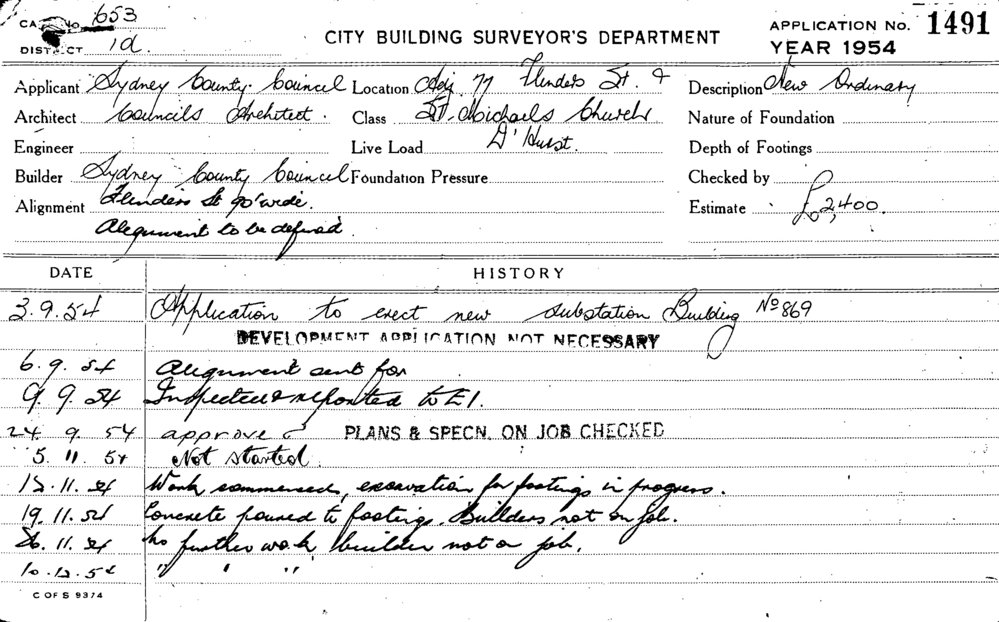 CARD No. 653
DISTRICT 1d.
CITY BUILDING SURVEYOR'S DEPARTMENT
APPLICATION No. 1491
YEAR 1954
Applicant Sydney County Council Location Adj. 77 Flinders St. & Description New Ordinary
Architect Councils Architect. Class St. Michaels Church Nature of Foundation
Engineer Live Load D'Hurst. Depth of Footings
Builder Sydney County Council Foundation Pressure Checked by
Alignment Flinders St 90' wide. Estimate £2,400.
Alignment to be defined.
DATE HISTORY
3.9.54 Application to erect new substation Building No 869
DEVELOPMENT APPLICATION NOT NECESSARY
6.9.54 Alignment sent for
9.9.54 Inspected & reported to E1.
24.9.54 approved PLANS & SPECN. ON JOB CHECKED
5.11.54 Not started.
12.11.54 Work commenced, excavation for footings in progress.
19.11.54 Concrete poured to footings. Builders not on job.
26.11.54 No further work, builder not on job.
10.12.54 " " "
C OF S 9374